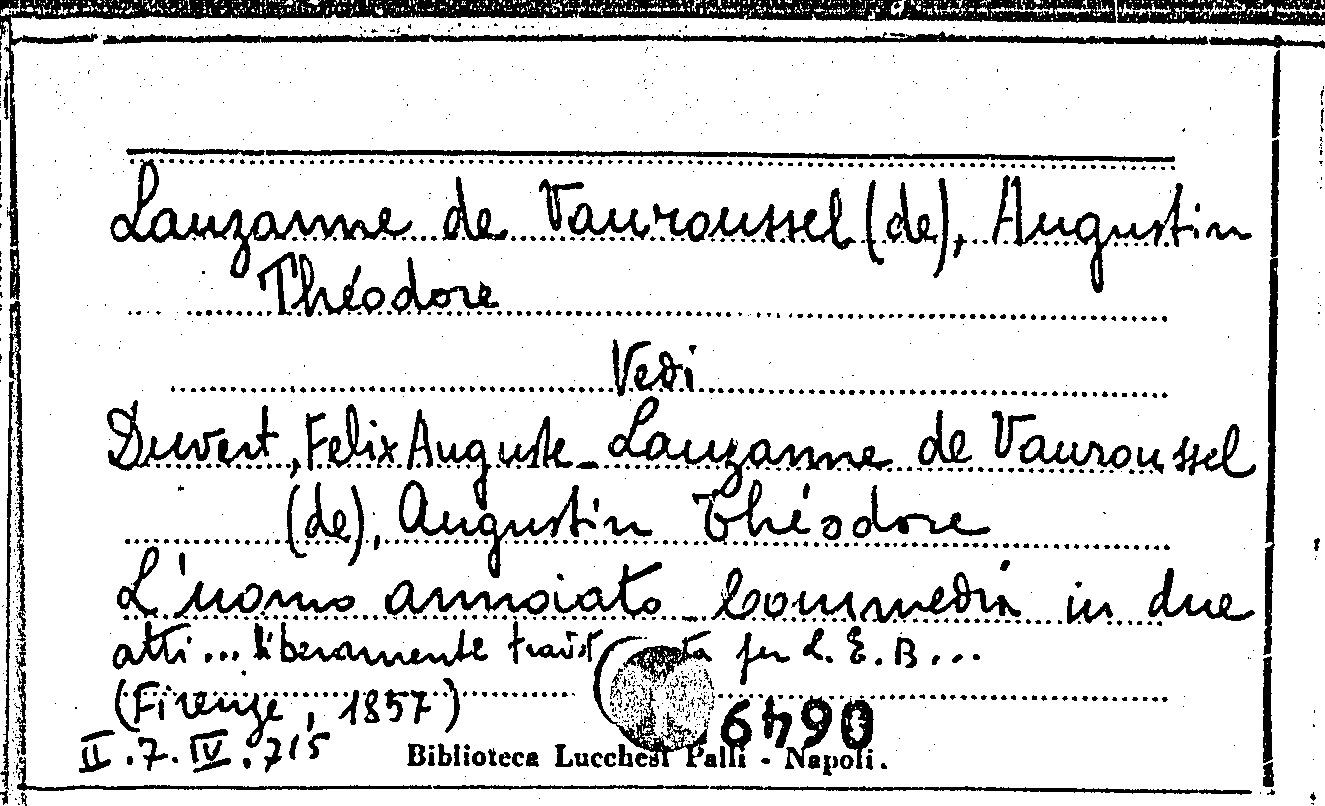 Lauzanne de Vauroussel (de), Augustin
Théodore
Vedi
Duvert, Felix Auguste - Lauzanne de Vauroussel
(de), Augustin Théodore
L'uomo annoiato. Commedia in due
atti... liberamente per L. E. B...
(Firenze, 1857)
II.7.IV.715
Biblioteca Lucchesi Palli - Napoli.